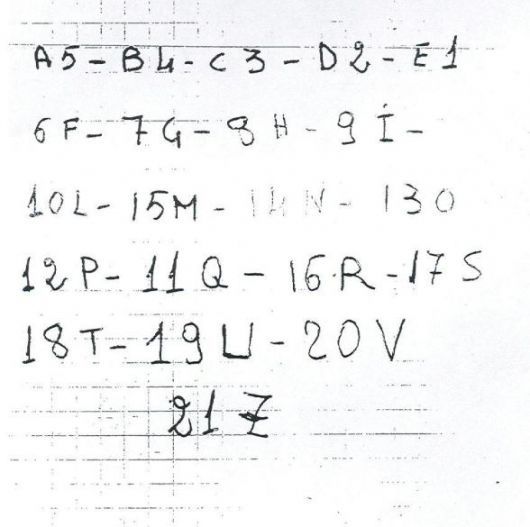 A5 - B4 - C3 - D2 - E1
6F - 7G - 8H - 9İ -
10L - 15M - 14N - 13O
12P - 11Q - 16R - 17S
18T - 19U - 20V
21Z